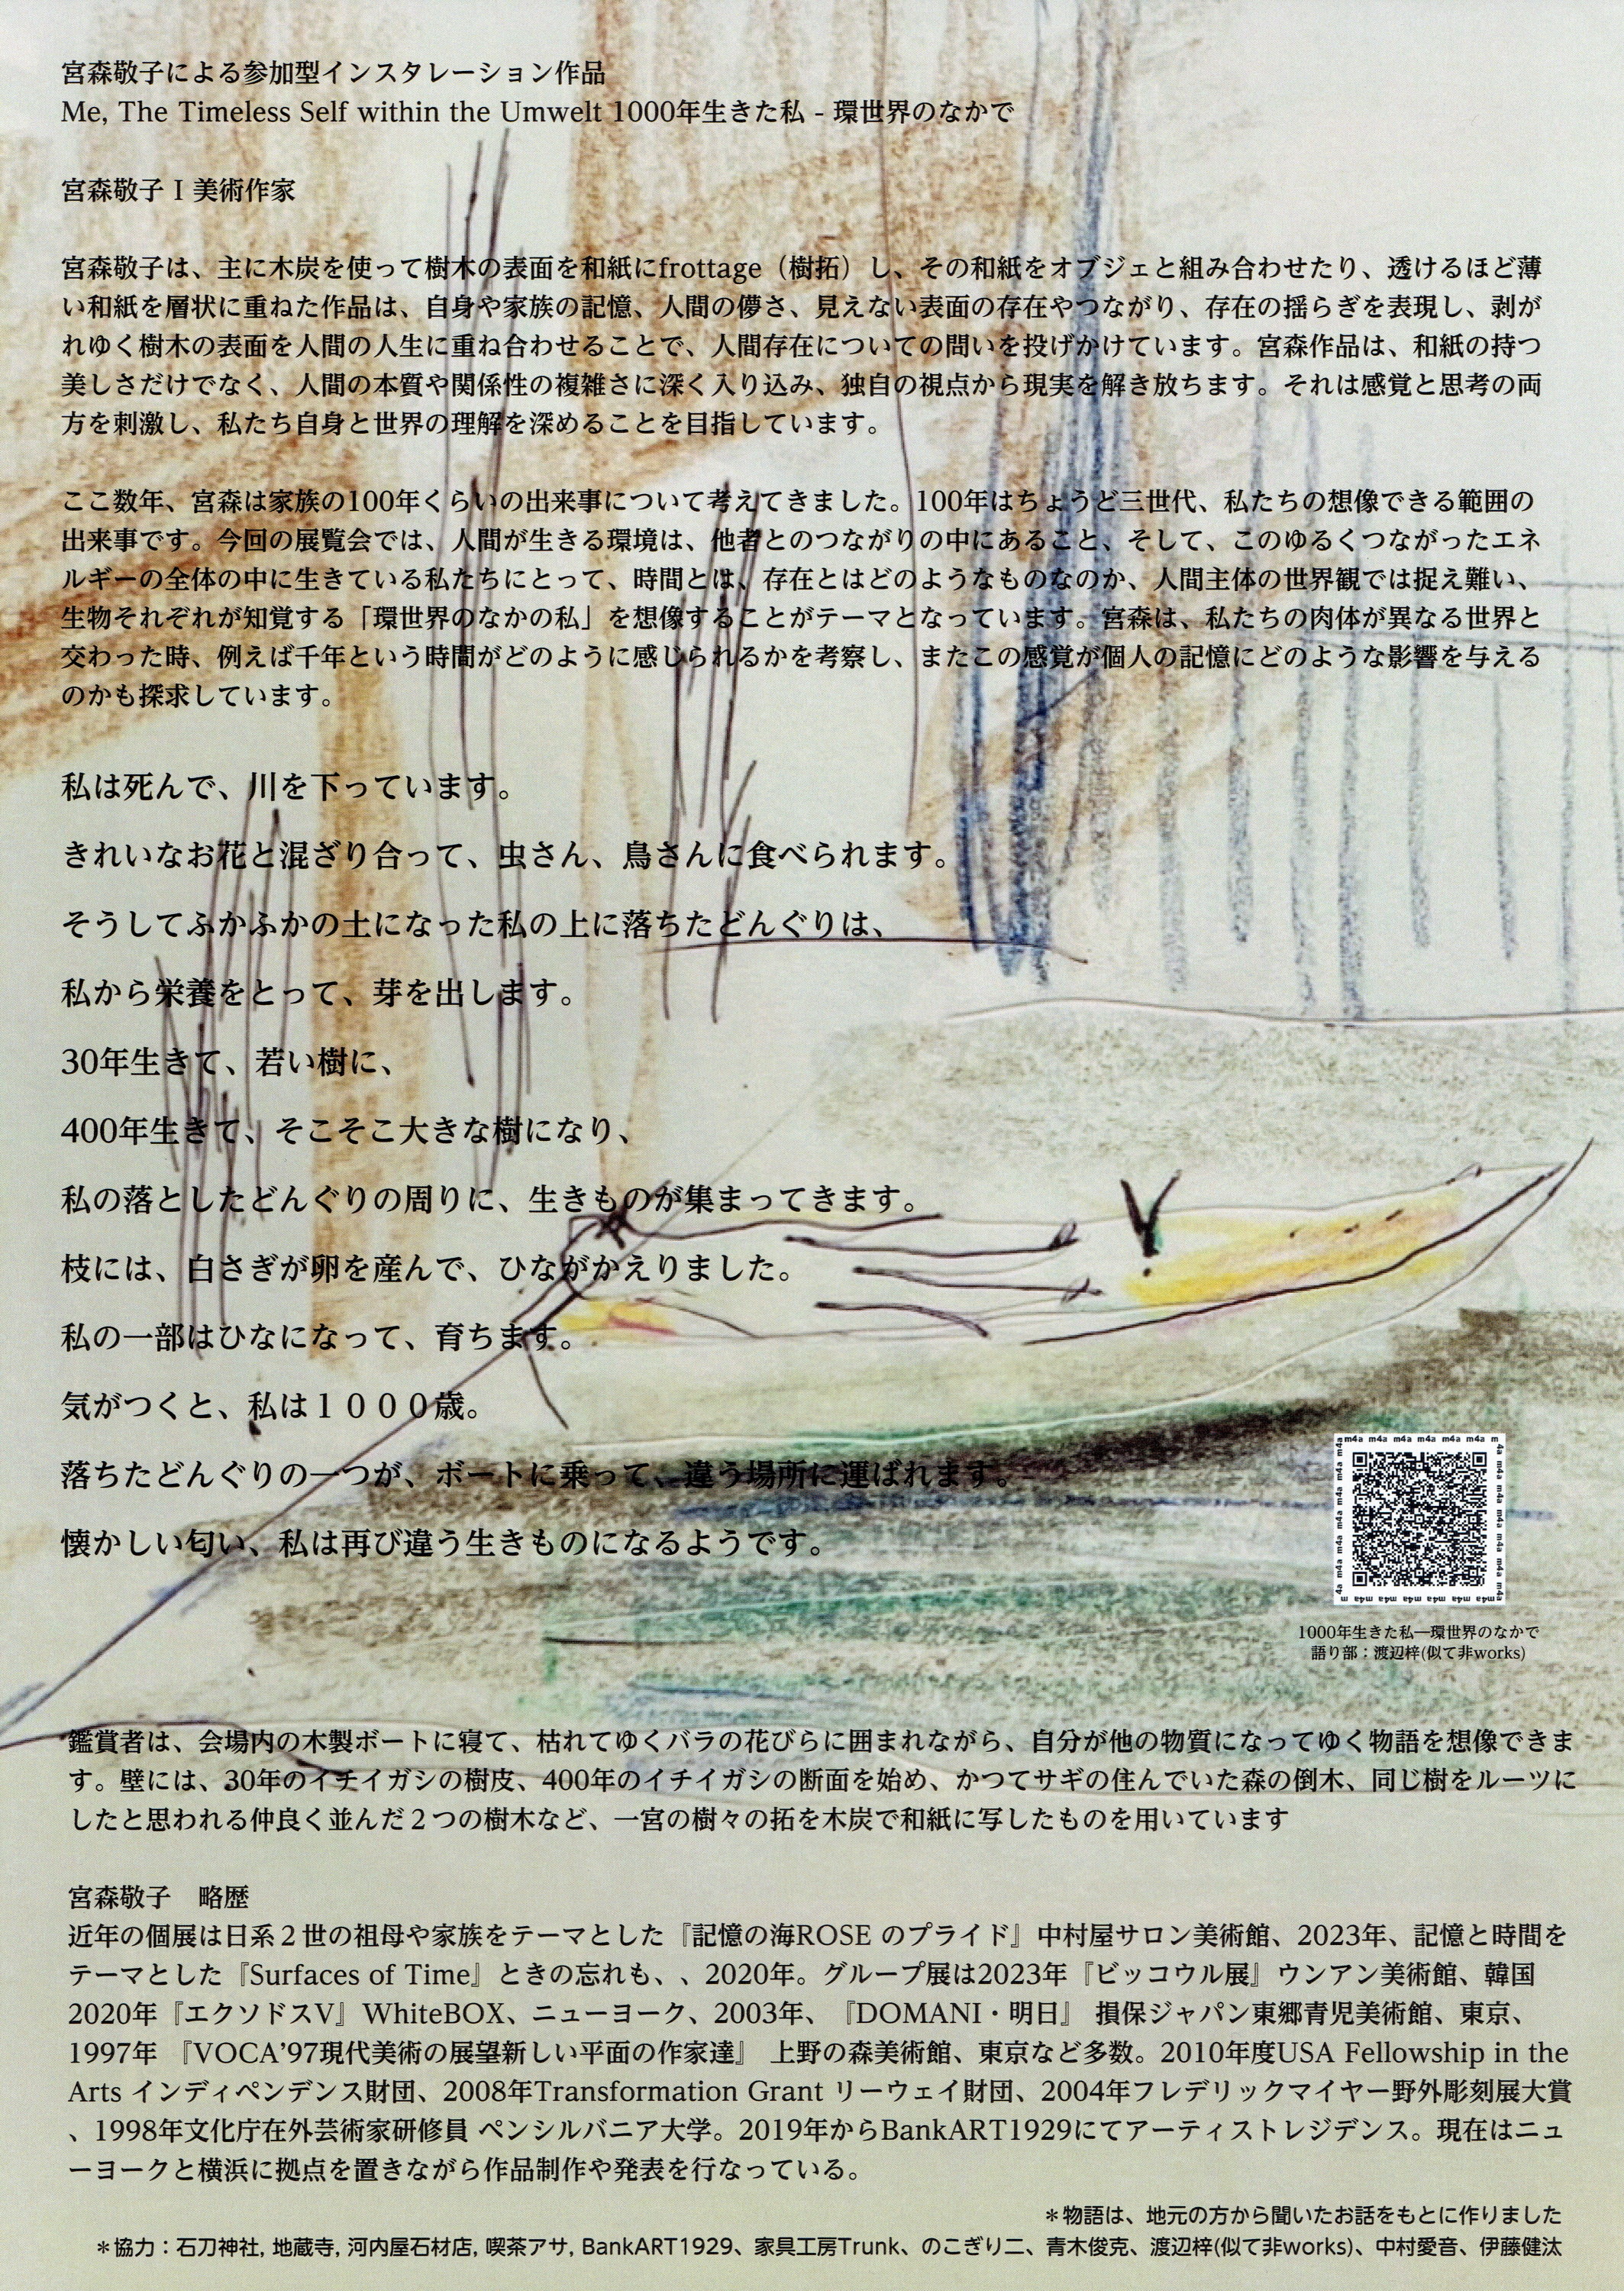 宮森敬子による参加型インスタレーション作品
Me, The Timeless Self within the Umwelt 1000年生きた私 - 環世界のなかで
宮森敬子 I 美術作家
宮森敬子は、主に木炭を使って樹木の表面を和紙にfrottage（樹拓）し、その和紙をオブジェと組み合わせたり、透けるほど薄
い和紙を層状に重ねた作品は、自身や家族の記憶、人間の儚さ、見えない表面の存在やつながり、存在の揺らぎを表現し、剥が
れゆく樹木の表面を人間の人生に重ね合わせることで、人間存在についての問いを投げかけています。宮森作品は、和紙の持つ
美しさだけでなく、人間の本質や関係性の複雑さに深く入り込み、独自の視点から現実を解き放ちます。それは感覚と思考の両
方を刺激し、私たち自身と世界の理解を深めることを目指しています。
ここ数年、宮森は家族の100年くらいの出来事について考えてきました。100年はちょうど三世代、私たちの想像できる範囲の
出来事です。今回の展覧会では、人間が生きる環境は、他者とのつながりの中にあること、そして、このゆるくつながったエネ
ルギーの全体の中に生きている私たちにとって、時間とは、存在とはどのようなものなのか、人間主体の世界観では捉え難い、
生物それぞれが知覚する「環世界のなかの私」を想像することがテーマとなっています。宮森は、私たちの肉体が異なる世界と
交わった時、例えば千年という時間がどのように感じられるかを考察し、またこの感覚が個人の記憶にどのような影響を与える
のかも探求しています。
私は死んで、川を下っています。
きれいなお花と混ざり合って、虫さん、鳥さんに食べられます。
そうしてふかふかの土になった私の上に落ちたどんぐりは、
私から栄養をとって、芽を出します。
30年生きて、若い樹に、
400年生きて、そこそこ大きな樹になり、
私の落としたどんぐりの周りに、生きものが集まってきます。
枝には、白さぎが卵を産んで、ひながかえりました。
私の一部はひなになって、育ちます。
気がつくと、私は１０００歳。
落ちたどんぐりの一つが、ボートに乗って、違う場所に運ばれます。
懐かしい匂い、私は再び違う生きものになるようです。
m4a m4a m4a m4a m4a m4a m
4a m4a m4a m4a m4a m4a m4a
m4a m4a m4a m4a m4a m4a m
4a m4a m4a m4a m4a m4a m4a
1000年生きた私―環世界のなかで
語り部：渡辺梓(似て非works)
鑑賞者は、会場内の木製ボートに寝て、枯れてゆくバラの花びらに囲まれながら、自分が他の物質になってゆく物語を想像できま
す。壁には、30年のイチイガシの樹皮、400年のイチイガシの断面を始め、かつてサギの住んでいた森の倒木、同じ樹をルーツに
したと思われる仲良く並んだ２つの樹木など、一宮の樹々の拓を木炭で和紙に写したものを用いています
宮森敬子　略歴
近年の個展は日系２世の祖母や家族をテーマとした『記憶の海ROSE のプライド』中村屋サロン美術館、2023年、記憶と時間を
テーマとした『Surfaces of Time』ときの忘れも、、2020年。グループ展は2023年『ビッコウル展』ウンアン美術館、韓国
2020年『エクソドスV』WhiteBOX、ニューヨーク、2003年、『DOMANI・明日』 損保ジャパン東郷青児美術館、東京、
1997年 『VOCA’97現代美術の展望新しい平面の作家達』 上野の森美術館、東京など多数。2010年度USA Fellowship in the
Arts インディペンデンス財団、2008年Transformation Grant リーウェイ財団、2004年フレデリックマイヤー野外彫刻展大賞
、1998年文化庁在外芸術家研修員 ペンシルバニア大学。2019年からBankART1929にてアーティストレジデンス。現在はニュ
ーヨークと横浜に拠点を置きながら作品制作や発表を行なっている。
＊物語は、地元の方から聞いたお話をもとに作りました
＊協力：石刀神社, 地蔵寺, 河内屋石材店, 喫茶アサ, BankART1929、家具工房Trunk、のこぎり二、青木俊克、渡辺梓(似て非works)、中村愛音、伊藤健汰